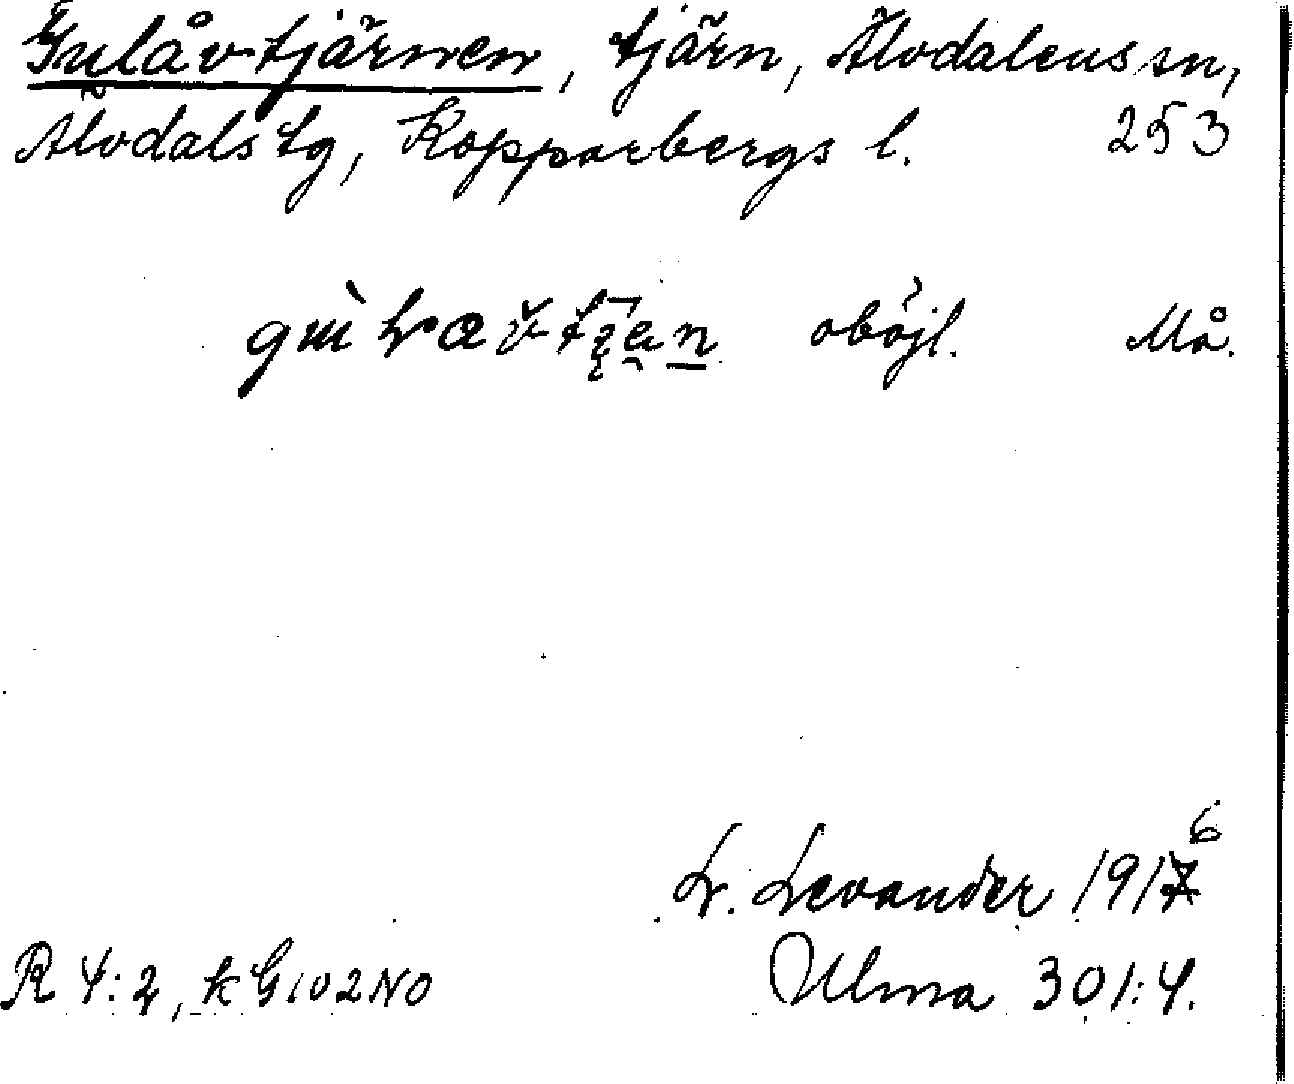 Gulåvtjärnen, tjärn, Älvdalens sn,
Älvdals tg, Kopparbergs l. 253
oböjl. Må.
L. Levander 1916
R 4:2, k G102NO Ulma 301:4.